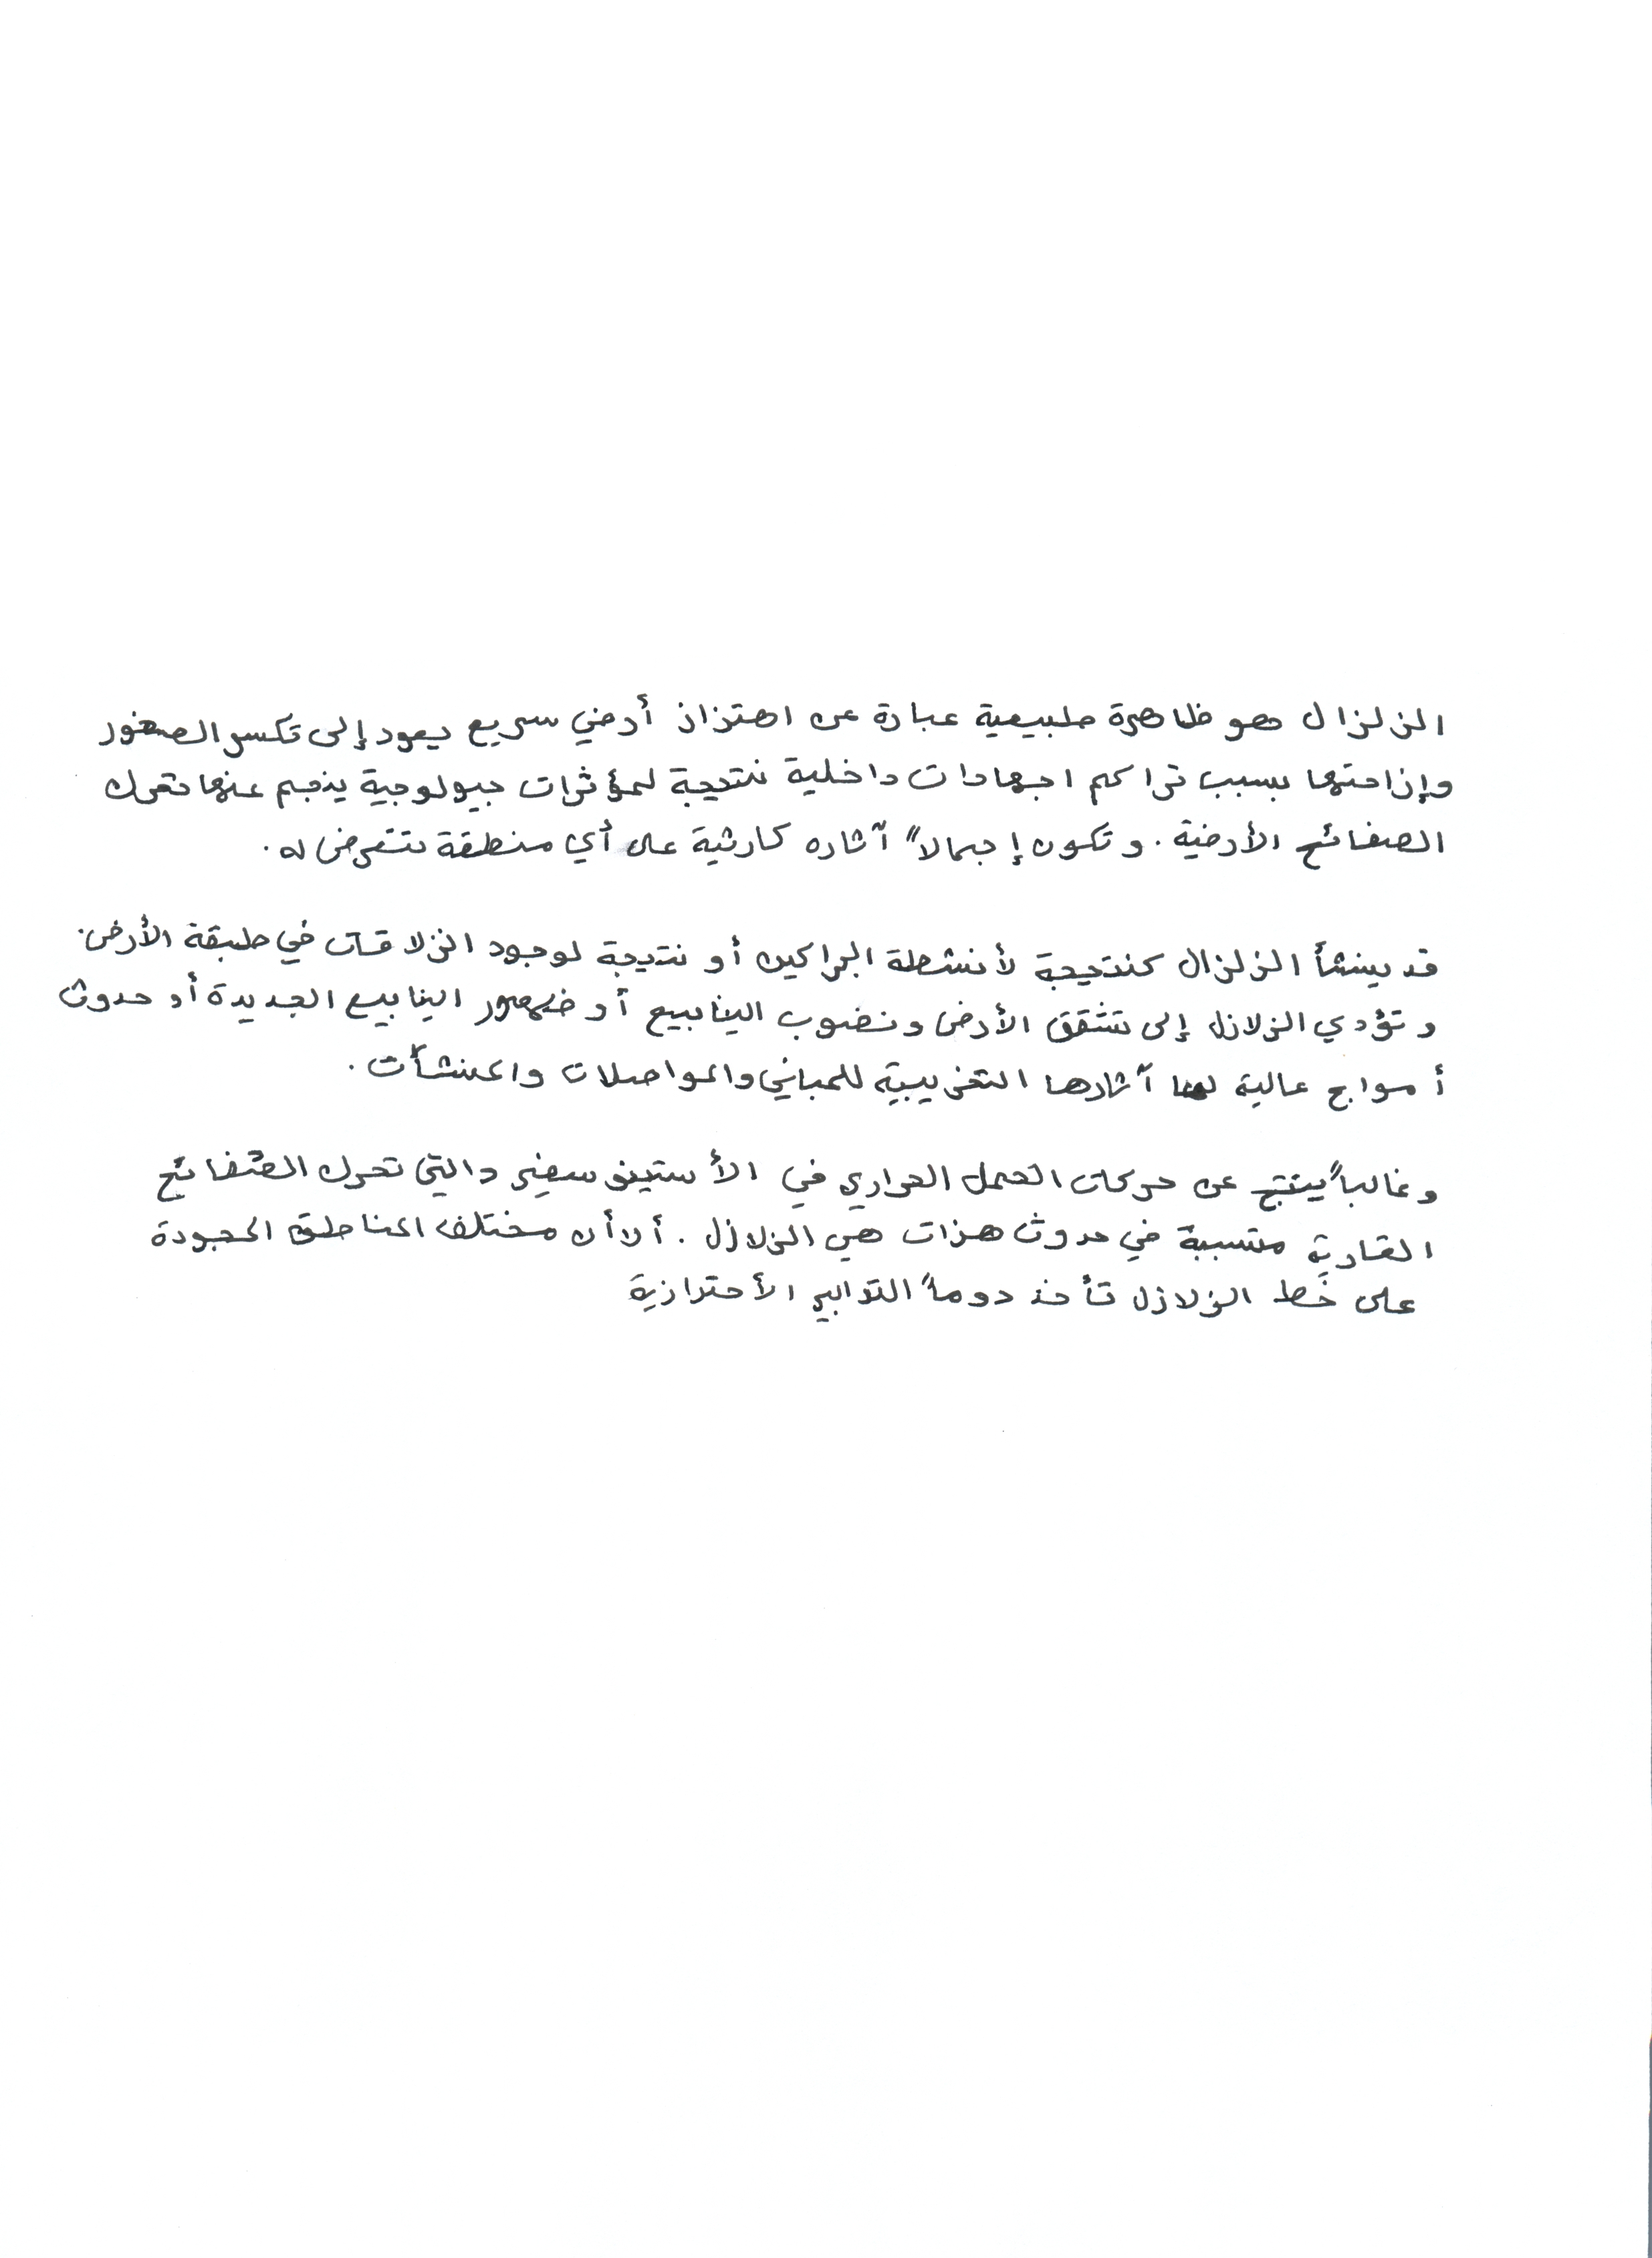 الزلزال هو ظاهرة طبيعية عبارة عن اهتزاز أرضي سريع يعود إلى تكسر الصخور
وإزاحتها بسبب تراكم اجهادات داخلية نتيجة لمؤثرات جيولوجية ينجم عنها تحرك
الصفائح الأرضية. وتكون إجمالاً آثاره كارثية على أي منطقة تتعرض له.
قد ينشأ الزلزال كنتيجة لأنشطة البراكين أو نتيجة لوجود انزلاقات في طبقة الأرض.
وتؤدي الزلازل إلى تشقق الأرض ونضوب الينابيع أو ظهور الينابيع الجديدة أو حدوث
أمواج عالية لها آثارها التخريبية للمباني والمواصلات والمنشآت.
وغالباً ينتج عن حركات الحمل الحراري في الأستينوسفير والتي تحرك الصفائح
القارية متسببة في حدوث هزات هي الزلازل. ألا أن مختلف المناطق الموجودة
على خط الزلازل تأخذ دوماً التدابير الأحترازية